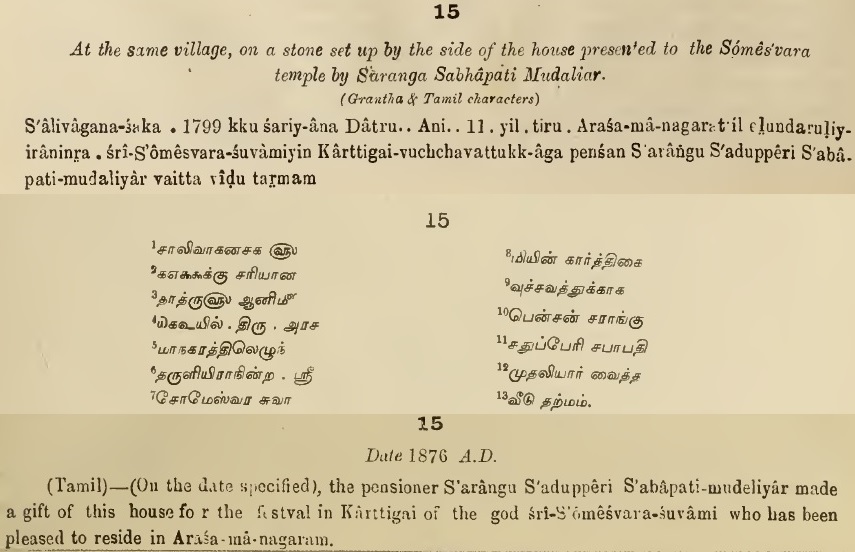 15
At the same village, on a stone set up by the side of the house presented to the Sómês'vara
temple by Sàranga Sabhâpati Mudaliar.
(Grantha & Tamil characters)
S'âlivâgana-śaka . 1799 kku śariy-âna Dâtru.. Ani.. 11. yil. tiru . Araśa-mâ-nagarat'il eḻundaruḷiy-
irâninṟa . śrî-S'ômêsvara-śuvàmiyin Kârttigai-vuchchavattukk-âga penśan S'arâṅgu S'aduppêri S'abâ-
pati-mudaliyâr vaitta vîḍu taṟmam
15
¹சாலிவாகனசக ௵
²௧௭௯௯க்கு சரியான
³தாத்ரு௵ ஆனி௴
⁴திரு . அரச
⁵மாநகரத்திலெழுந்
⁶தருளியிராநின்ற . ஸ்ரீ
⁷சோமேஸ்வர சுவா
⁸மியின் கார்த்திகை
⁹வுச்சவத்துக்காக
¹⁰பென்சன் சராங்கு
¹¹சதுப்பேரி சபாபதி
¹²முதலியார் வைத்த
¹³வீடு தற்மம்.
15
Date 1876 A.D.
(Tamil)—(On the date specified), the pensioner S'arângu S'aduppêri S'abâpati-mudeliyâr made
a gift of this house fo r the festval in Kârttigai of the god śrî-S'ômêśvara-śuvâmi who has been
pleased to reside in Araśa-mâ-nagaram.